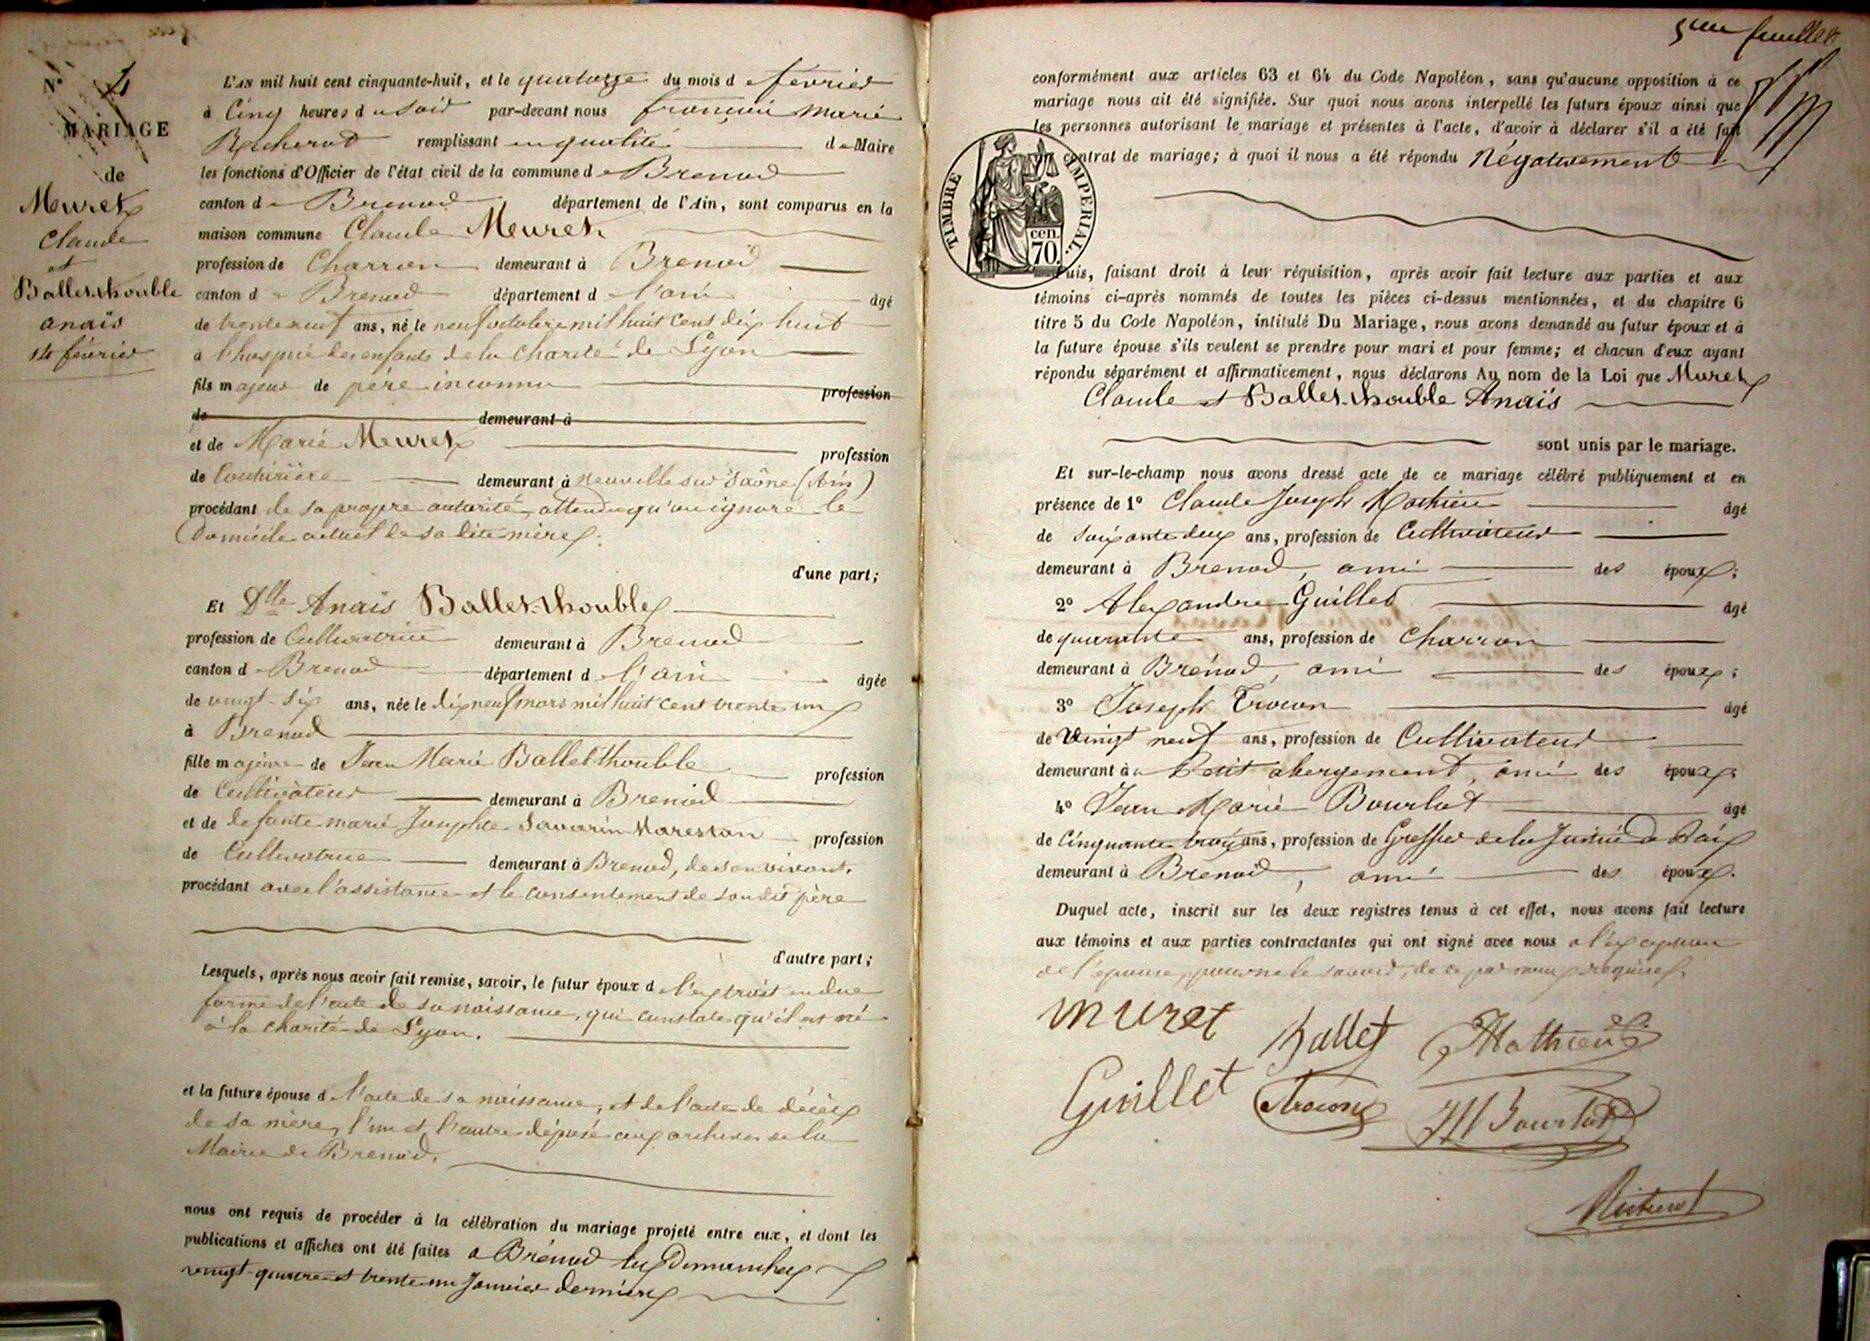 N° 4
MARIAGE
de
Muret
Claude
et
Ballet-thouble
anaïs
14 février
L'AN mil huit cent cinquante-huit, et le quatorze du mois de février
à Cinq heures du Soir par-devant nous françois marie
remplissant en qualité de Maire
les fonctions d'Officier de l'état civil de la commune de Brenod
canton de Brenod département de l'Ain, sont comparus en la
maison commune Claude Muret
profession de Charron demeurant à Brenod
canton de Brenod département de l'ain âgé
de trente neuf ans, né le neuf octobre mil huit cent dix huit
à l'hospice des enfants de la charité de Lyon
fils majeur de père inconnu profession
de demeurant à
et de Marie Muret profession
de Couturière demeurant à neuville sur Saône (Ain)
procédant de sa propre autorité, attendu qu'on ignore le
Domicile actuel de sa dite mère.
d'une part;
Et Dlle Anaïs Ballet-thouble
profession de Cultivatrice demeurant à Brenod
canton de Brenod département de l'ain âgée
de vingt-six ans, née le dix neuf mars mil huit cent trente un
à Brenod
fille majeure de Jean Marie Ballet thouble profession
de Cultivateur demeurant à Brenod
et de defunte marie Josephte Savarin Marestan profession
de Cultivatrice demeurant à Brenod, de son vivant.
procédant avec l'assistance et le consentement de son dit père
d'autre part;
Lesquels, après nous avoir fait remise, savoir, le futur époux de l'extrait en due
forme de l'acte de sa naissance, qui constate qu'il est né
à la charité de Lyon.
et la future épouse de l'acte de sa naissance, et de l'acte de décès
de sa mère, l'un et l'autre déposés aux archives de la
Mairie de Brenod.
nous ont requis de procéder à la célébration du mariage projeté entre eux, et dont les
publications et affiches ont été faites à Brénod les Dimanches
vingt-quatre et trente un Janvier derniers
5me feuillet
conformément aux articles 63 et 64 du Code Napoléon, sans qu'aucune opposition à ce
mariage nous ait été signifiée. Sur quoi nous avons interpellé les futurs époux ainsi que
les personnes autorisant le mariage et présentes à l'acte, d'avoir à déclarer s'il a été fait
contrat de mariage; à quoi il nous a été répondu Négativement
TIMBRE IMPERIAL.
cen.
70.
Puis, faisant droit à leur réquisition, après avoir fait lecture aux parties et aux
témoins ci-après nommés de toutes les pièces ci-dessus mentionnées, et du chapitre 6
titre 5 du Code Napoléon, intitulé Du Mariage, nous avons demandé au futur époux et à
la future épouse s'ils veulent se prendre pour mari et pour femme; et chacun d'eux ayant
répondu séparément et affirmativement, nous déclarons Au nom de la Loi que Muret
Claude et Ballet-thouble Anaïs
sont unis par le mariage.
Et sur-le-champ nous avons dressé acte de ce mariage célébré publiquement et en
présence de 1° Claude Joseph Mathieu âgé
de soixante deux ans, profession de Cultivateur
demeurant à Brenod, ami des époux;
2° Alexandre Guillet âgé
de quarante ans, profession de Charron
demeurant à Brénod, ami des époux;
3° Joseph Trocon âgé
de Vingt neuf ans, profession de Cultivateur
demeurant au Petit abergement, ami des époux;
4° Jean Marie Bourlot âgé
de Cinquante trois ans, profession de Greffier de la Justice de Paix
demeurant à Brenod, ami des époux.
Duquel acte, inscrit sur les deux registres tenus à cet effet, nous avons fait lecture
aux témoins et aux parties contractantes qui ont signé avec nous à l'exception
de l'épouse, pour ne le savoir, de ce par nous requise.
muret
Ballet
Mathieu
Guillet
Trocon
JM Bourlot